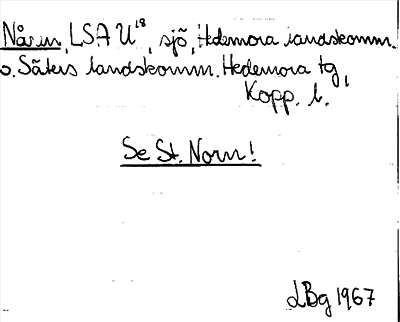 Nårin, LSA U 18, sjö, Hedemora landskomm.
o. Säters landskomm. Hedemora tg,
Kopp. l.
Se St. Norn!
LBg 1967